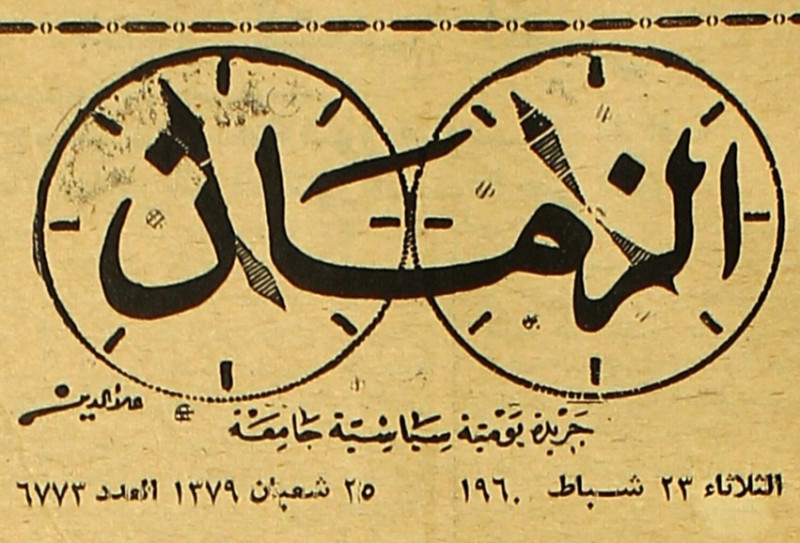 الزمان
علاءالدين
جريدة يومية سياسية جامعة
الثلاثاء ٢٣ شباط ١٩٦٠ ٢٥ شعبان ١٣٧٩ العدد ٦٧٧٣